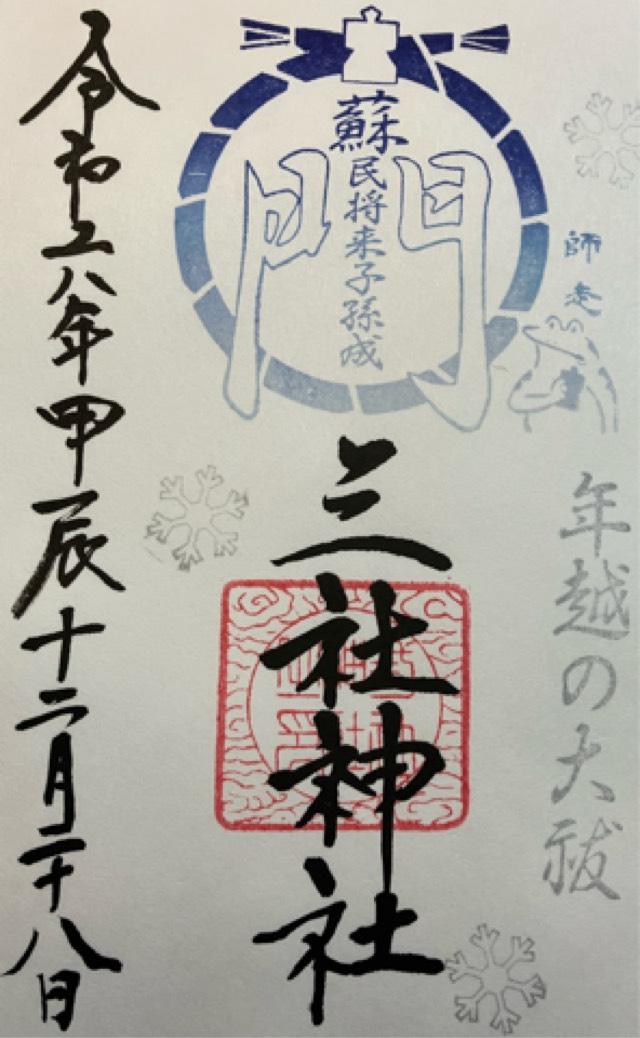 師走
年越の大祓
蘇民将来子孫成
門
三社神社
令和六年甲辰十二月二十八日